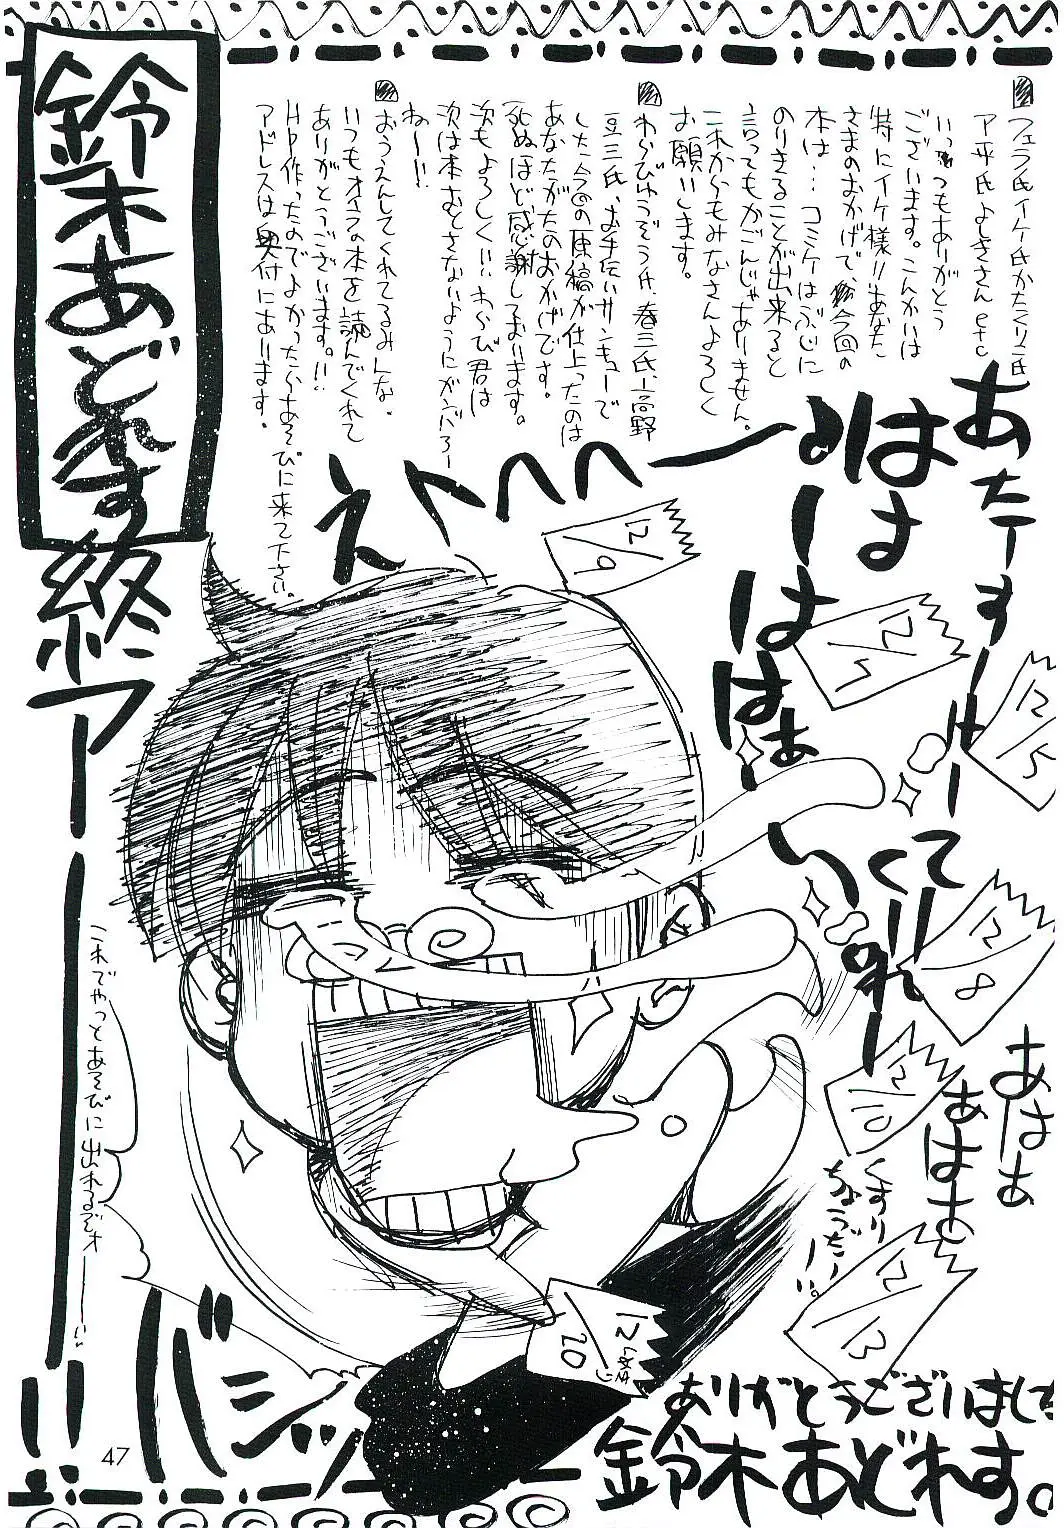 フェラ氏イケ氏かたくり二氏
ア平氏よしきさんetc
いつもありがとう
ございます。こんかいは
特にイケ様!!あなた
さまのおかげで今回の
本は…コミケはぶじに
のりきることが出来ると
言ってもかごんじゃありません。
これからもみなさんよろしく
お願いします。
わらびゅうぞう氏、春三氏、高野
豆三氏、お手伝いサンキューで
した今回の原稿が仕上ったのは
あなたがたのおかげです。
死ぬほど感謝しております。
次もよろしくい、わらび君は
次は本おとさないようにがんバろー
ねー!!
おうえんしてくれてるみんな、
いつもオイラの本を読んでくれて
ありがとうございます。!!
HP作ったのでよかったらあそびに来て下さい。
アドレスは奥付にあります。
鈴木あどれす
終アーーー!!
あたーすーけーてーくれーーー
ははーははぁ
いーのー
えへへへー
あはぁ
あはぁ
くすり
ちょうだーい。
12/9
12/5
12/5
12/8
12/10
12/13
12/20
しめきり
これでやっとあそびに出れるぞォーーー!!
バシッ
ありがとうございました
鈴木あどれす。
47